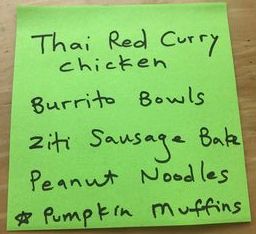 Thai Red Curry
chicken
Burrito Bowls
Ziti Sausage Bake
Peanut Noodles
☆ Pumpkin Muffins